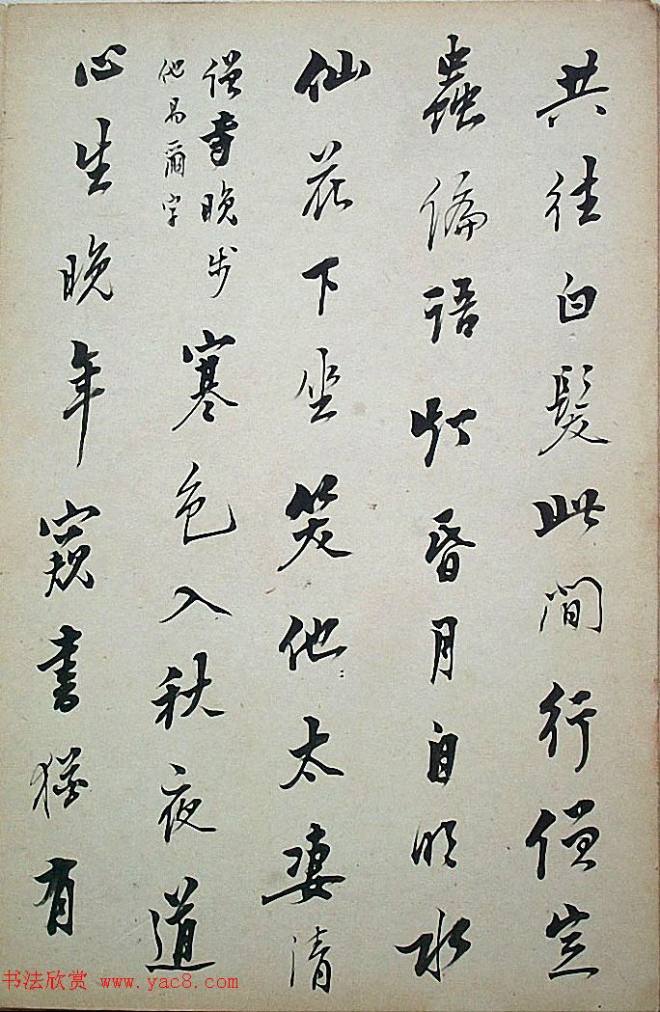 共往白髮此間行僧定
蟲偏語燈昏月自明水
仙花下坐笑他太凄清
僧寺晚步
他易爾字
寒色入秋夜道
心生晚年窺書猶有
书法欣赏 www.yac8.com